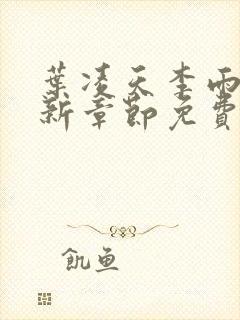 葉凌天李雨
新章節免費
飢魚